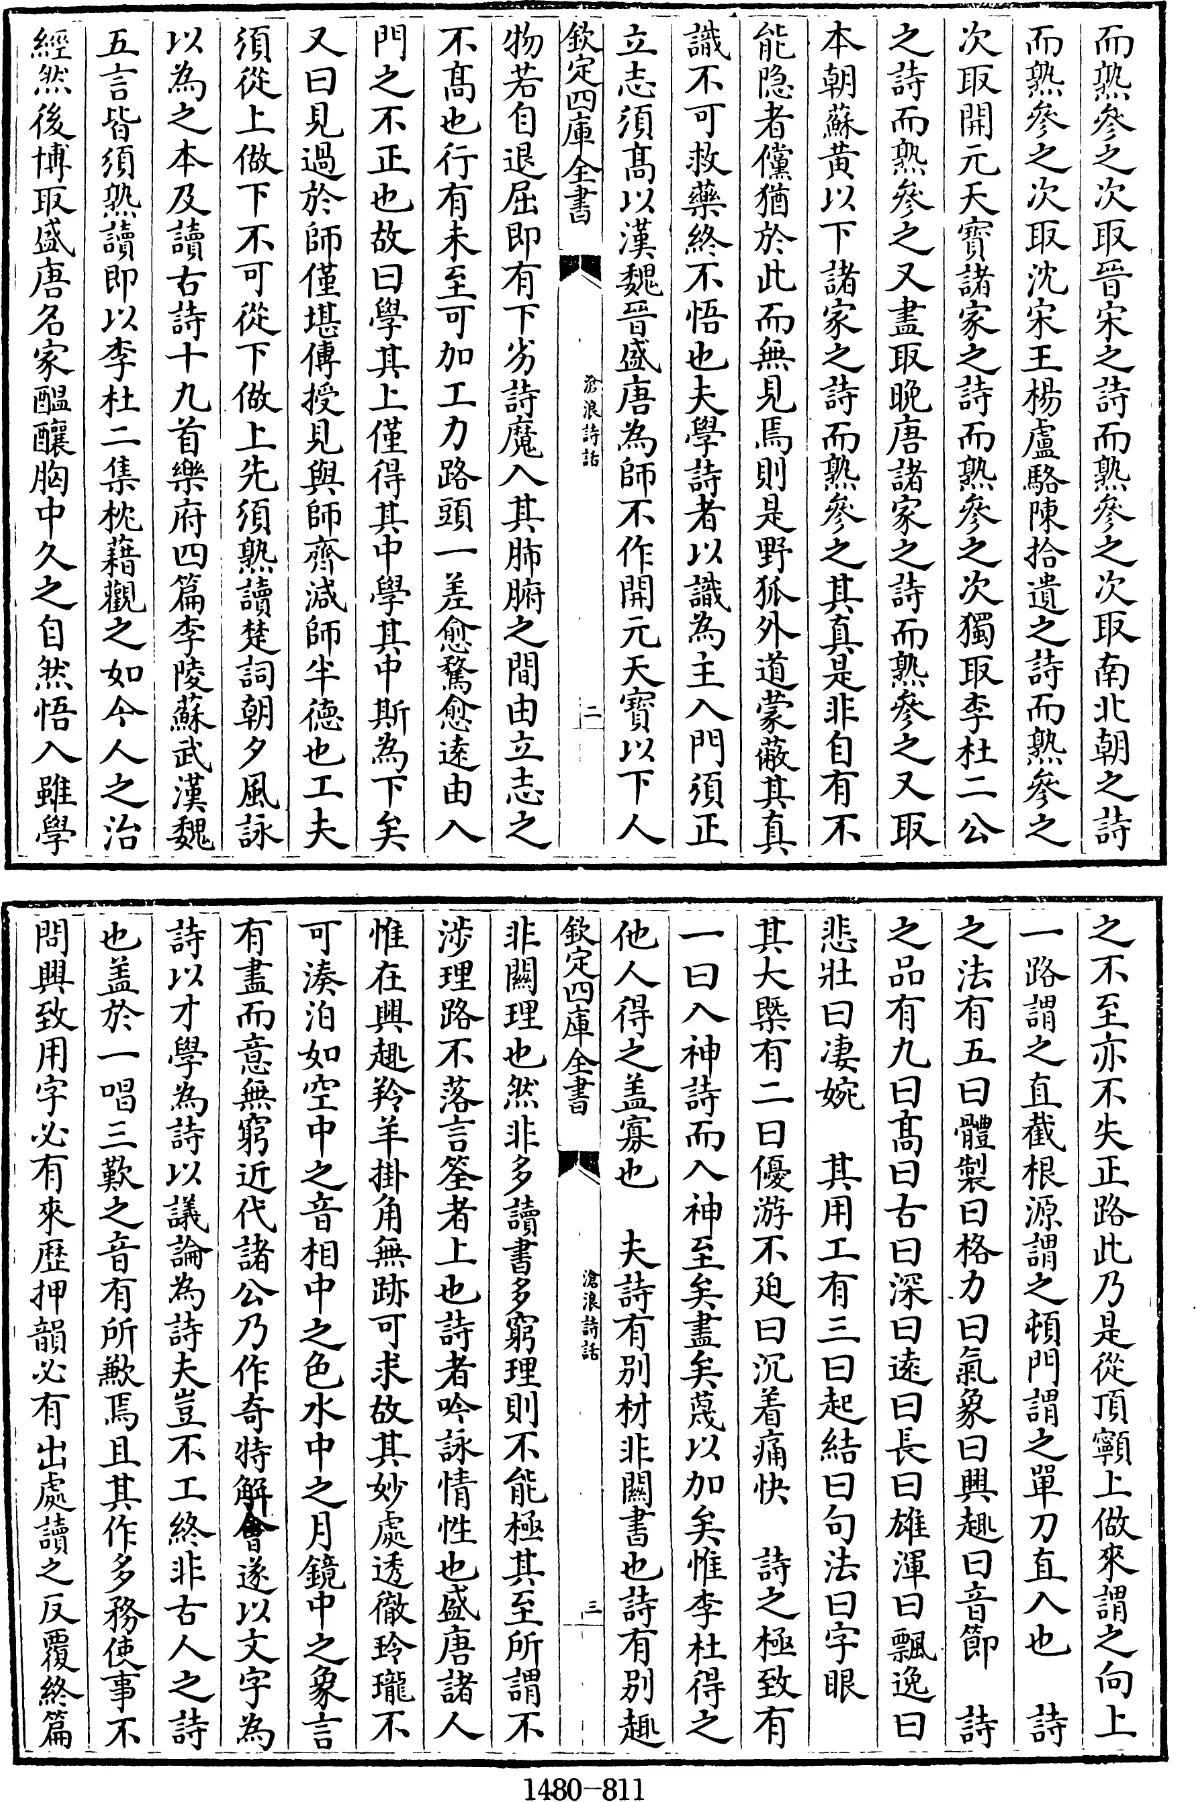 而熟參之次取晉宋之詩而熟參之次取南北朝之詩
而熟參之次取沈宋王楊盧駱陳拾遺之詩而熟參之
次取開元天寶諸家之詩而熟參之次獨取李杜二公
之詩而熟參之又盡取晚唐諸家之詩而熟參之又取
本朝蘇黄以下諸家之詩而熟參之其真是非自有不
能隐者儻猶於此而無見焉則是野狐外道蒙蔽其真
識不可救藥終不悟也夫學詩者以識為主入門須正
立志須髙以漢魏晉盛唐為師不作開元天寶以下人
欽定四庫全書 滄浪詩話 二
物若自退屈即有下劣詩魔入其肺腑之間由立志之
不髙也行有未至可加工力路頭一差愈騖愈遠由入
門之不正也故曰學其上僅得其中學其中斯為下矣
又曰見過於師僅堪傳授見與師齊減師半德也工夫
須從上做下不可從下做上先須熟讀楚詞朝夕風詠
以為之本及讀古詩十九首樂府四篇李陵蘇武漢魏
五言皆須熟讀即以李杜二集枕藉觀之如今人之治
經然後博取盛唐名家醖釀胸中久之自然悟入雖學
之不至亦不失正路此乃是從頂𩕳上做來謂之向上
一路謂之直截根源謂之頓門謂之單刀直入也 詩
之法有五曰體製曰格力曰氣象曰興趣曰音節 詩
之品有九曰髙曰古曰深曰遠曰長曰雄渾曰飄逸曰
悲壯曰凄婉 其用工有三曰起結曰句法曰字眼
其大槩有二曰優游不廹曰沉着痛快 詩之極致有
一曰入神詩而入神至矣盡矣蔑以加矣惟李杜得之
他人得之盖寡也 夫詩有别材非闗書也詩有别趣
欽定四庫全書 滄浪詩話 三
非闗理也然非多讀書多窮理則不能極其至所謂不
涉理路不落言筌者上也詩者吟詠情性也盛唐諸人
惟在興趣羚羊掛角無跡可求故其妙處透徹玲瓏不
可湊泊如空中之音相中之色水中之月鏡中之象言
有盡而意無窮近代諸公乃作奇特解會遂以文字為
詩以才學為詩以議論為詩夫豈不工終非古人之詩
也盖於一唱三歎之音有所歉焉且其作多務使事不
問興致用字必有來歴押韻必有出處讀之反覆終篇
1480-811